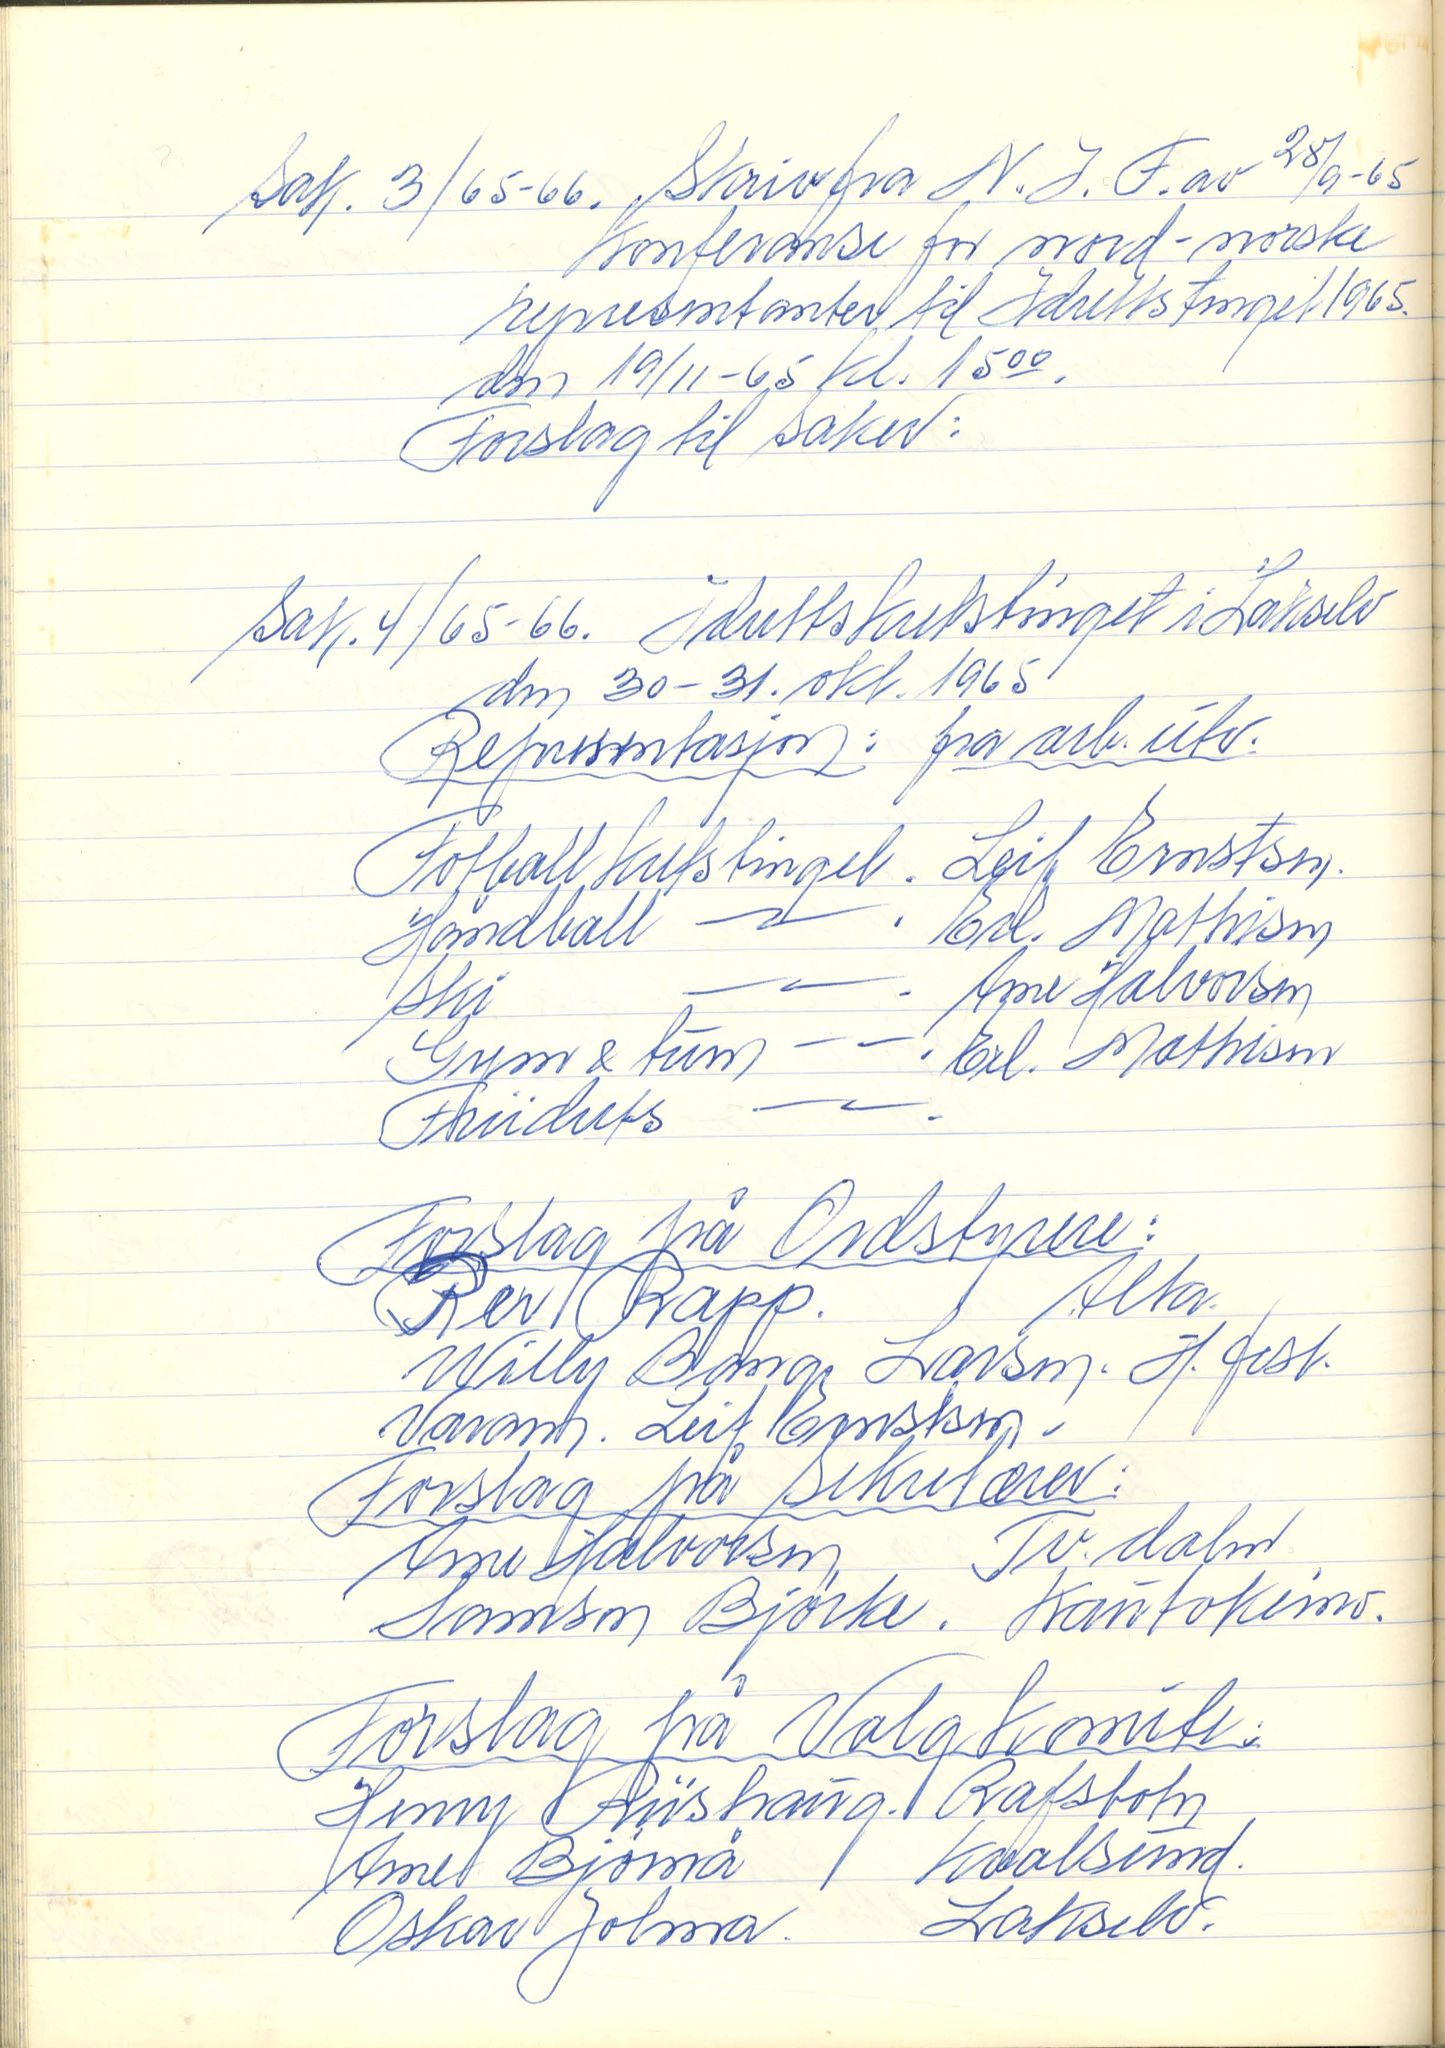 Sak. 3/65-66. Skriv fra N.I.F. av 28/9-65
Konferanse for nord-norske
representanter til Idrettstinget 1965.
den 19/11-65 kl. 15⁰⁰.
Forslag til saker:
Sak. 4/65-66. Idrettskretstinget i Lakselv
den 30-31. okt. 1965
Representasjon: fra arb. utv.
Fotballkretstinget. Leif Ernstsen.
Håndball —"— . Erl. Mathisen
Ski —"— . Arne Halvorsen
Gym & turn — — . Erl. Mathisen
Friidrets —"— .
Forslag på Ordstyrere:
Rapp. Alta.
Willy Bang Larsen. H.fest.
Varam. Leif Ernstsen.
Forslag på Sekretærer:
Arne Halvorsen Tv. dalen
Samson Bjørke. Kautokeino.
Forslag på Valgkomite:
Henry Riishaug. Rafsbotn
Arne Bjørnå Kvalsund.
Oskar Jolma. Lakselv.